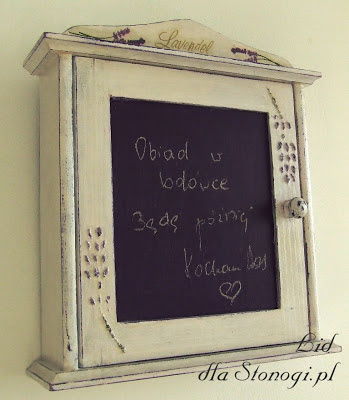 Lavendel
Obiad w
lodówce
Będę później
Kocham Was
Lid
dla Stonogi.pl